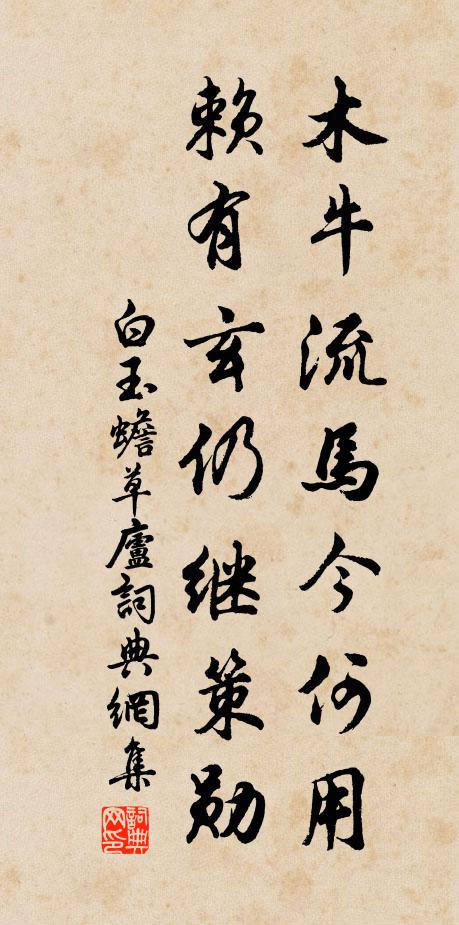 木牛流馬今何用
赖有玄仍继策勋
白玉蟾草廬詞典網集
詞典网印